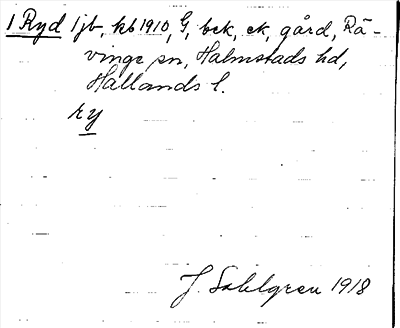 1 Ryd 1 jb, kb 1910, G, bck, ek, gård, Rä-
vinge sn, Halmstads hd,
Hallands l.
ry
J. Sahlgren 1918